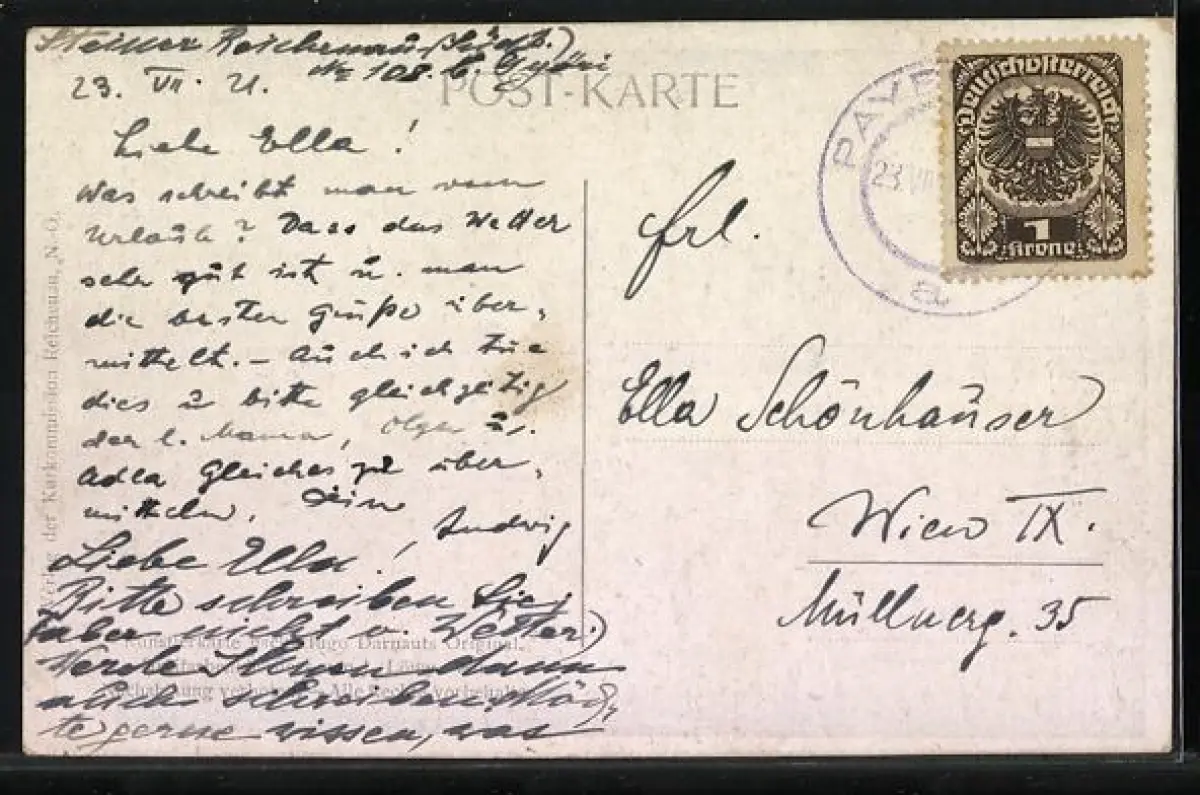 Steiner Reichenau
No 108.
23. VII. 21.
POST-KARTE
Liebe Ella!
Was schreibt man vom
Urlaub? Dass das Wetter
sehr gut ist u. man
die besten Grüße über-
mittelt. – Auch ich tue
dies u bitte gleichzeitig
der l. Mama, Olga u.
Adla Gleiches zu über-
mitteln, Dein
Ludwig
Liebe Ella!
Bitte schreiben Sie,
(aber nicht v. Wetter.)
Werde Ihnen dann
auch schreiben. Möch-
te gerne wissen, was
Verlag der Kurkommission Reichenau, N.-Ö.
Hugo Darnauts Original.
Alle Rechte vorbehalten
PAYE
23.VII
a
Deutschösterreich
1
Krone
Frl.
Ella Schönhauser
Wien IX.
Müllnerg. 35